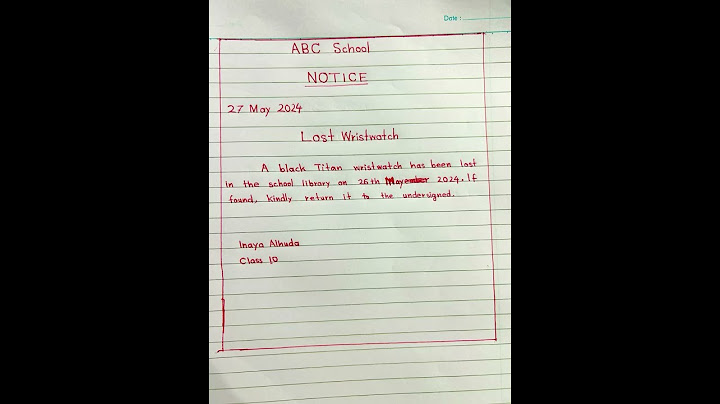 Date :
ABC School
NOTICE
27 May 2024
Lost Wristwatch
A black Titan wristwatch has been lost
in the school library on 26th May 2024. If
found, kindly return it to the undersigned.
Inaya Alhuda
Class 10